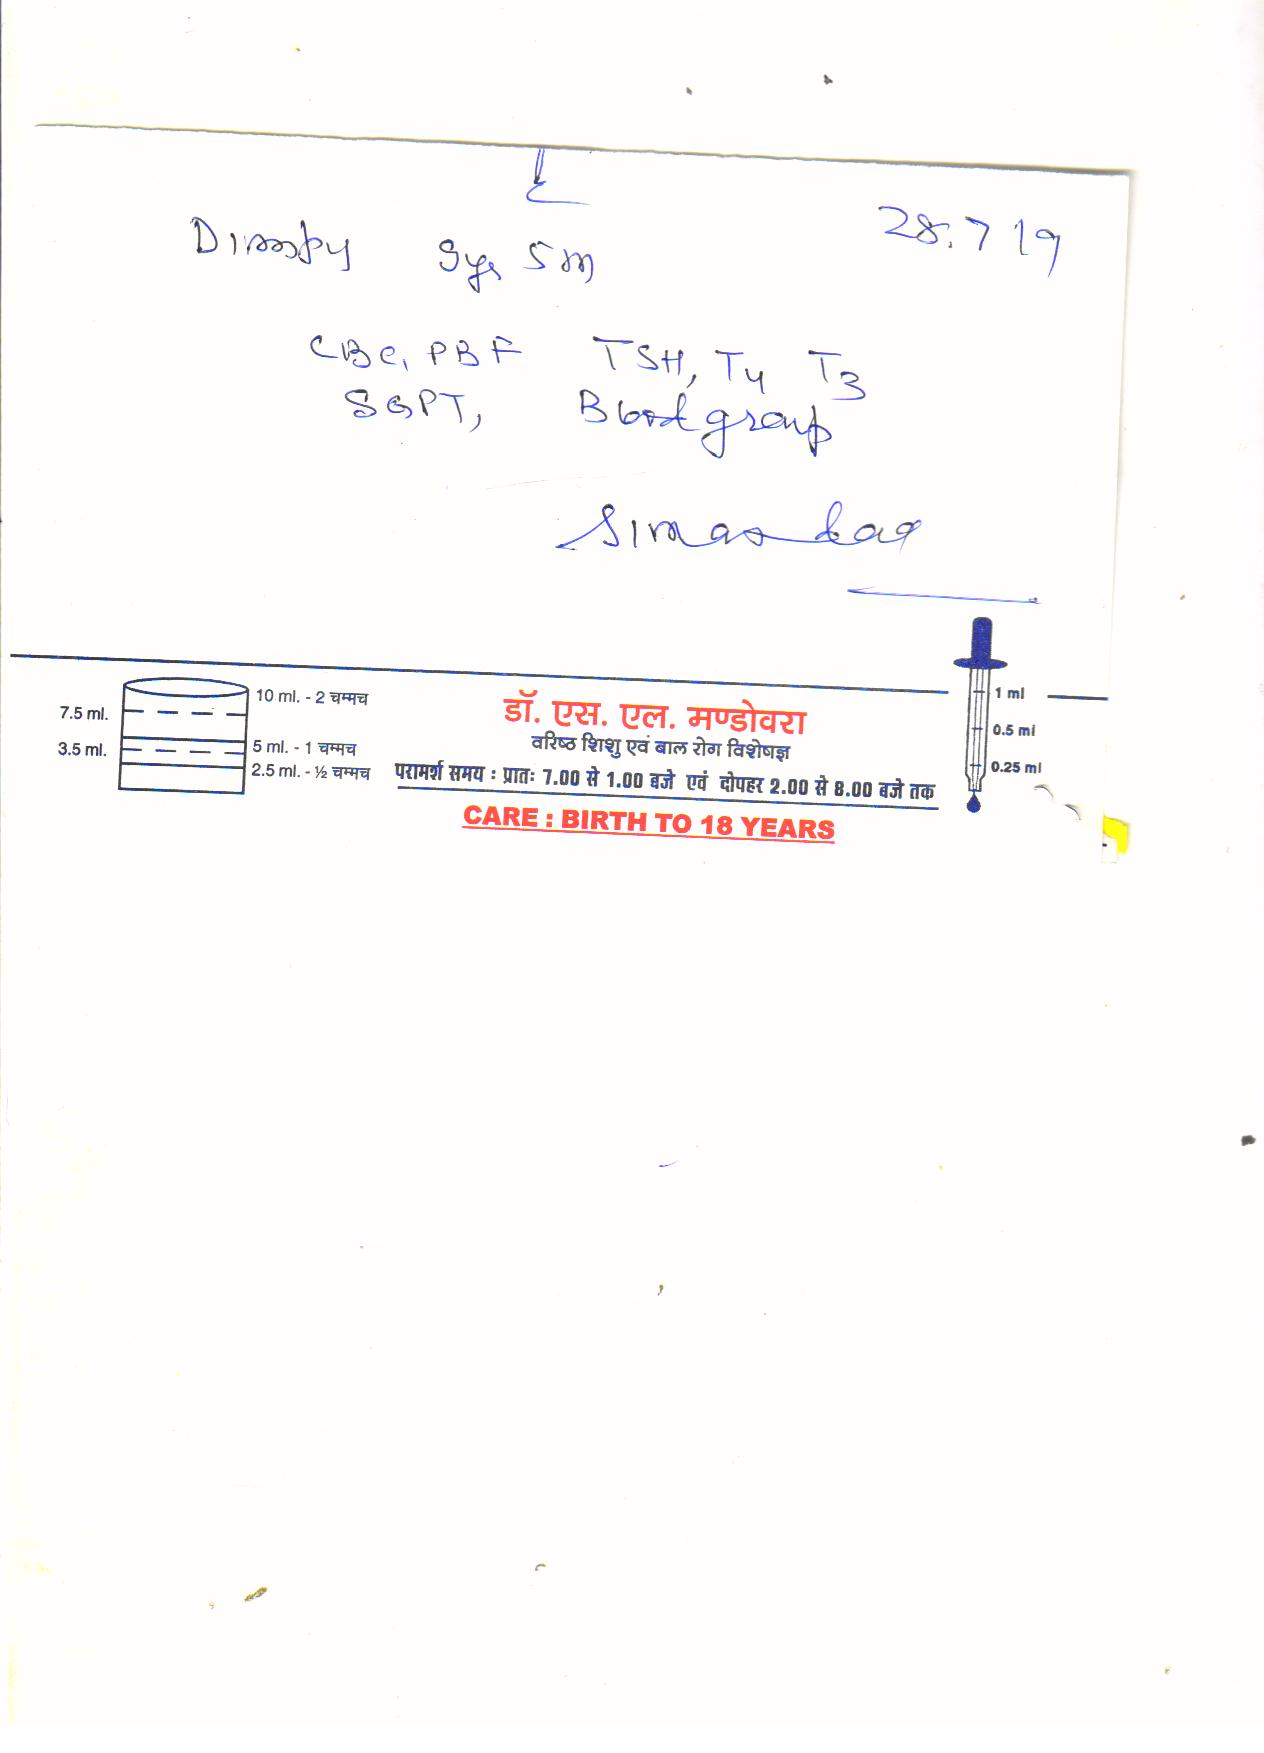 28.7.19
Dimpy 9yrs 5m
CBC, PBF TSH, T4 T3
SGPT, Blood group
10 ml. - 2 चम्मच
7.5 ml.
5 ml. - 1 चम्मच
3.5 ml.
2.5 ml. - ½ चम्मच
डॉ. एस. एल. मण्डोवरा
वरिष्ठ शिशु एवं बाल रोग विशेषज्ञ
परामर्श समय : प्रातः 7.00 से 1.00 बजे एवं दोपहर 2.00 से 8.00 बजे तक
CARE : BIRTH TO 18 YEARS
1 ml
0.5 ml
0.25 ml